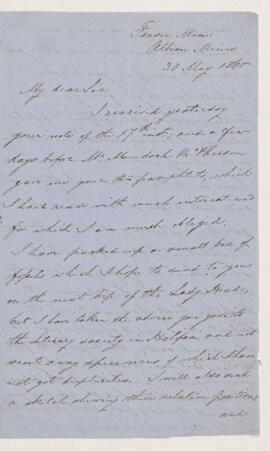 Albion Mines
30 May 1865
My dear Sir
I received yesterday
your note of the 17th inst, and a few
days before Mr Murdoch McPherson
gave me your two pamphlets, which
I have read with much interest and
for which I am much obliged.
I have packed up a small box of
fossils which I hope to send to you
on the next trip of the Lady Head
but I have taken the advice you gave to
the literary society in Halifax and not
sent away specimens of which I have
not got duplicates. I will also send
a sketch shewing their relative positions
and